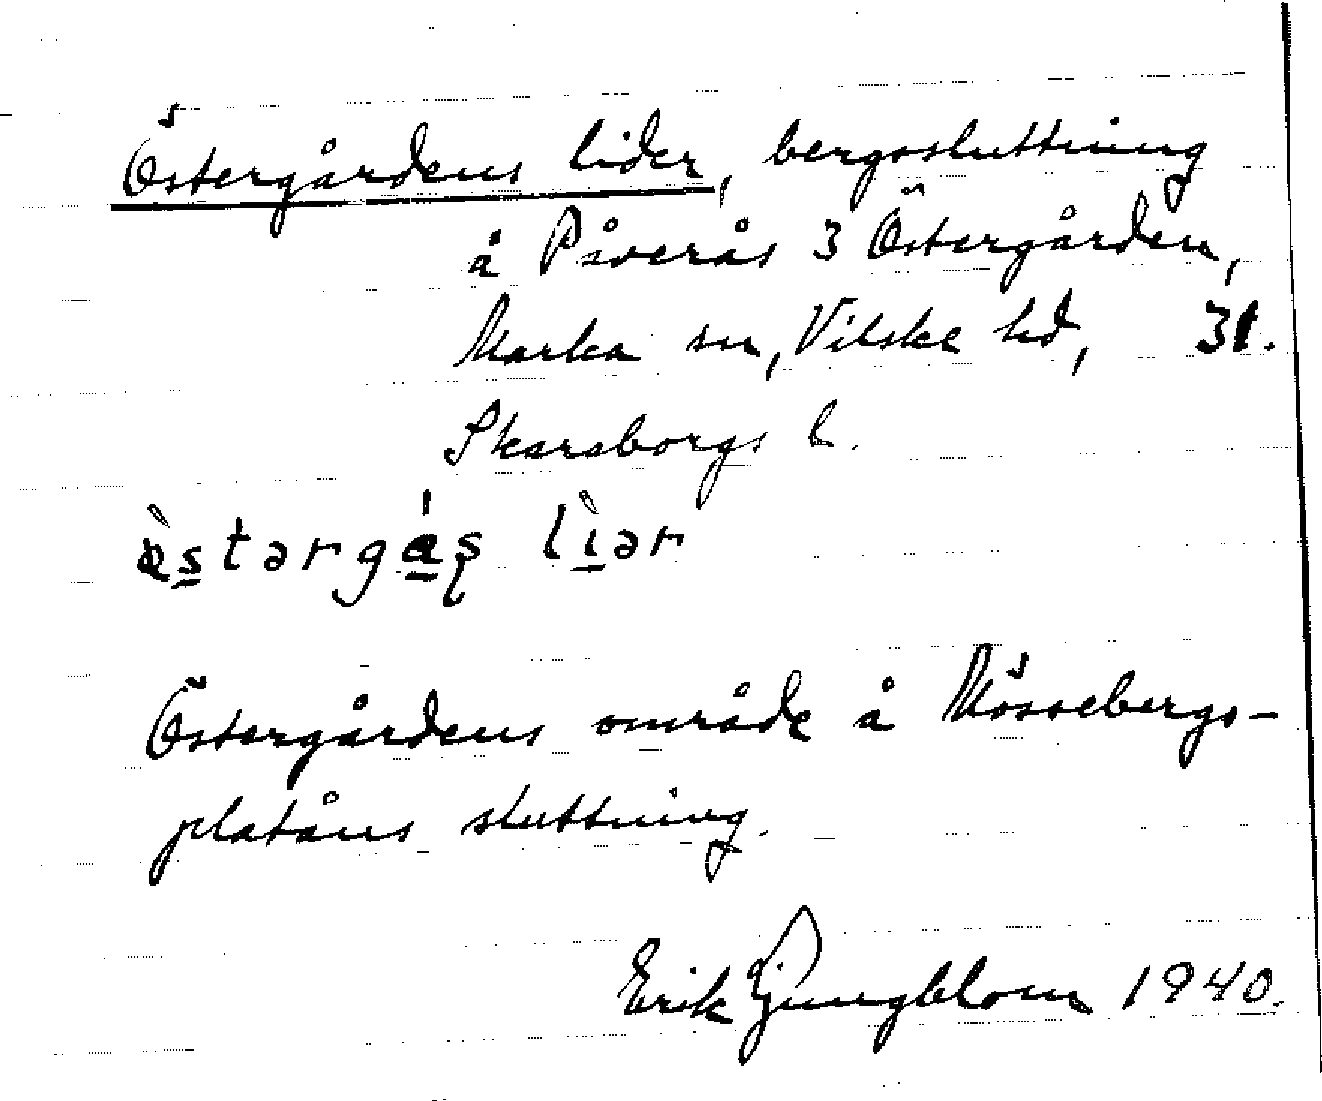 Östergårdens lider, bergssluttning
å Påverås 3 Östergården,
Marka sn, Vilske hd, 31.
Skaraborgs l.
östərgás lìər
Östergårdens område å Mössebergs-
platåns sluttning.
Erik Ljungblom 1940.